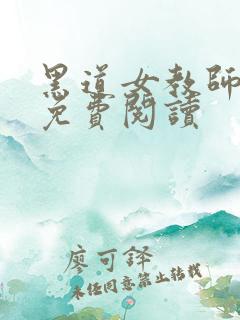 黑道女教師
免費閱讀
廖可鐸
未经同意禁止转载